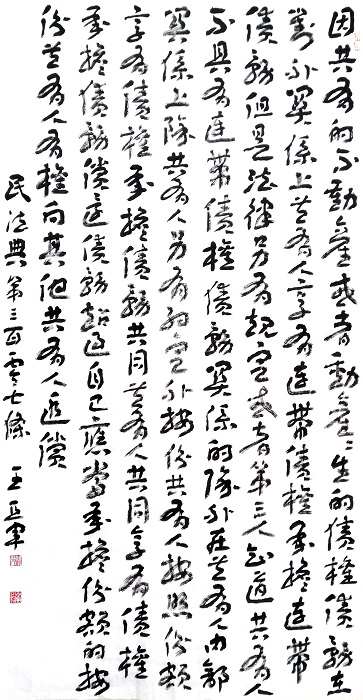 因共有的不動產或者動產產生的債權債務在
對外關係上共有人享有連帶債權承擔連帶
債務但是法律另有規定或者第三人知道共有人
不具有連帶債權債務關係的除外在共有人内部
關係上除共有人另有約定外按份共有人按照份額
享有債權承擔債務共同共有人共同享有債權
承擔債務償還債務超過自己應當承擔份額的按
份共有人有權向其他共有人追償
民法典第三百零七條 王